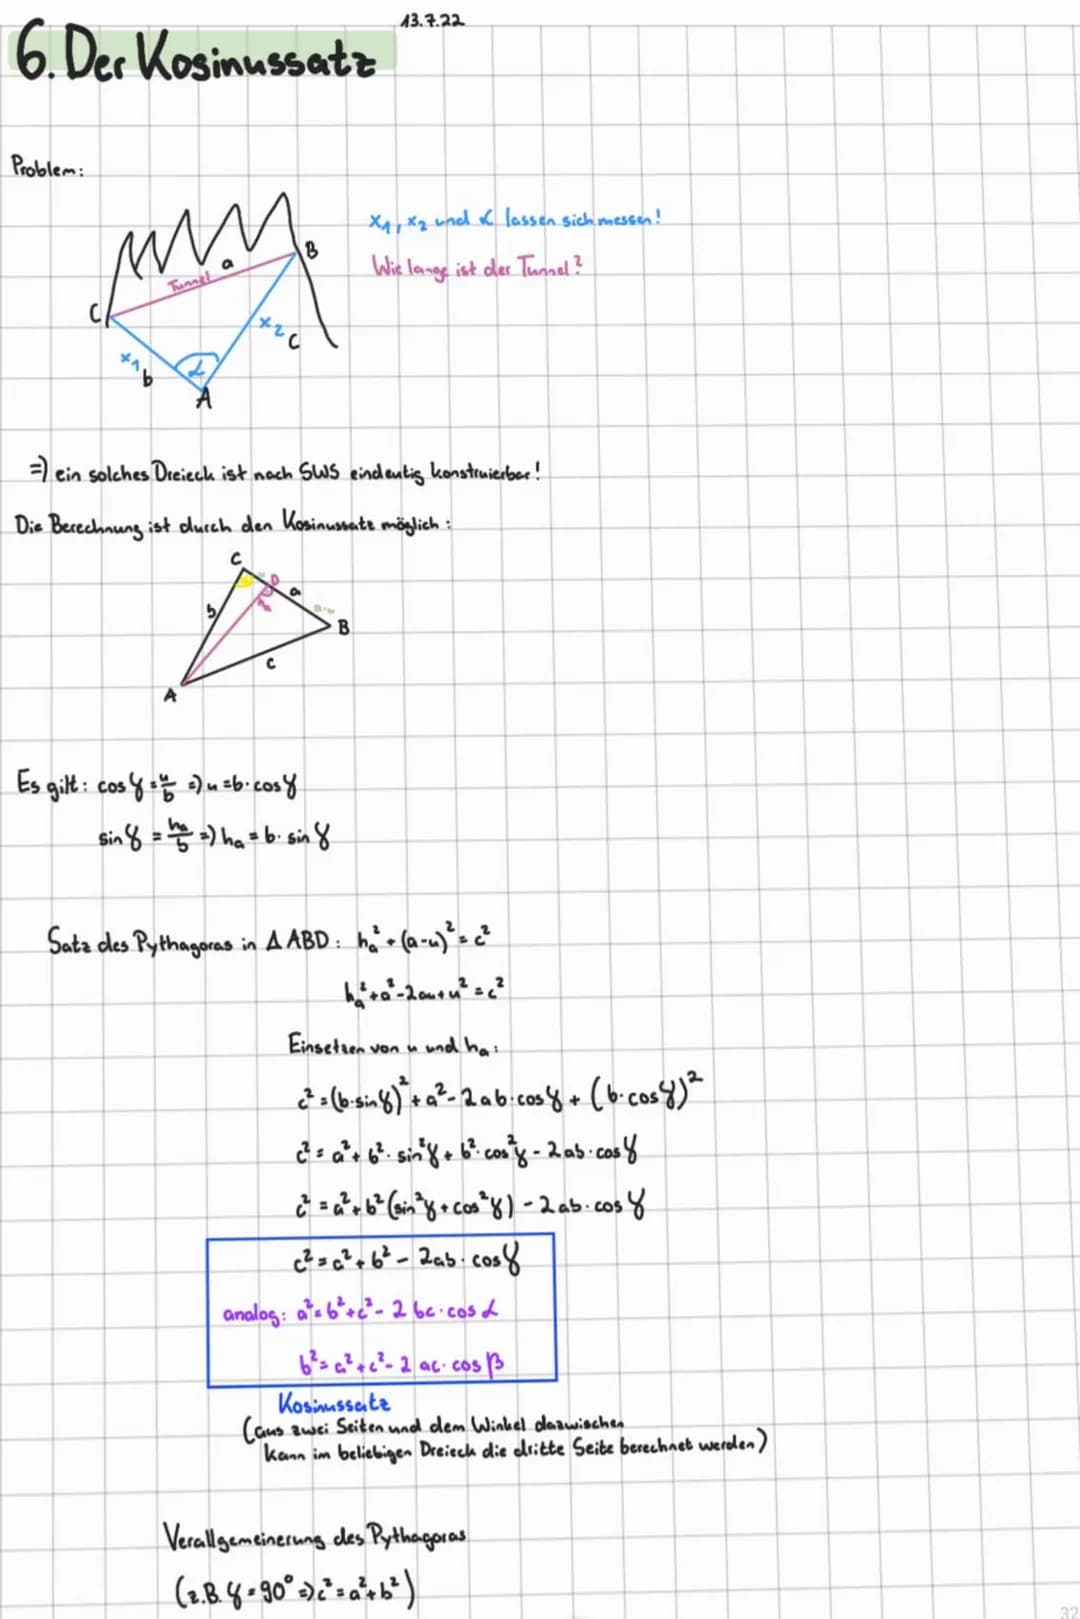 13.7.22
6. Der Kosinussatz
Problem:
x₁, x₂ und α lassen sich messen!
Wie lange ist der Tunnel?
B
a
Tunnel
C
x₂
c
x₁
b
α
A
=) ein solches Dreieck ist nach SWS eindeutig konstruierbar!
Die Berechnung ist durch den Kosinussatz möglich:
C
u
D
a
hₐ
b
a-u
B
c
A
Es gilt: cos γ = u/b =) u = b · cos γ
sin γ = hₐ/b =) hₐ = b · sin γ
Satz des Pythagoras in Δ ABD: hₐ² + (a-u)² = c²
hₐ² + a² - 2au + u² = c²
Einsetzen von u und hₐ:
c² = (b·sin γ)² + a² - 2ab·cos γ + (b·cos γ)²
c² = a² + b² · sin²γ + b² · cos²γ - 2ab · cos γ
c² = a² + b² (sin²γ + cos²γ) - 2ab · cos γ
c² = a² + b² - 2ab · cos γ
analog: a² = b² + c² - 2bc · cos α
b² = a² + c² - 2ac · cos β
Kosinussatz
(aus zwei Seiten und dem Winkel dazwischen
kann im beliebigen Dreieck die dritte Seite berechnet werden)
Verallgemeinerung des Pythagoras
(z.B. γ = 90° =) c² = a² + b²)
32